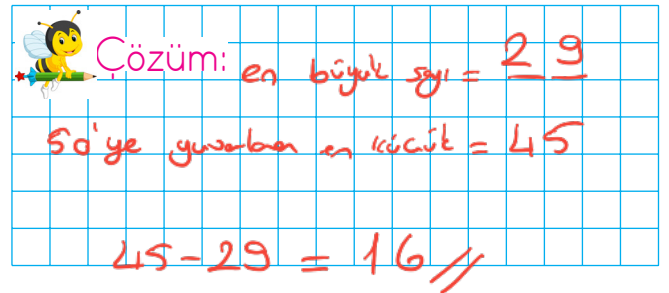 Çözüm: en büyük sayı = 29
50'ye yuvarlanan en küçük = 45
45-29 = 16 //